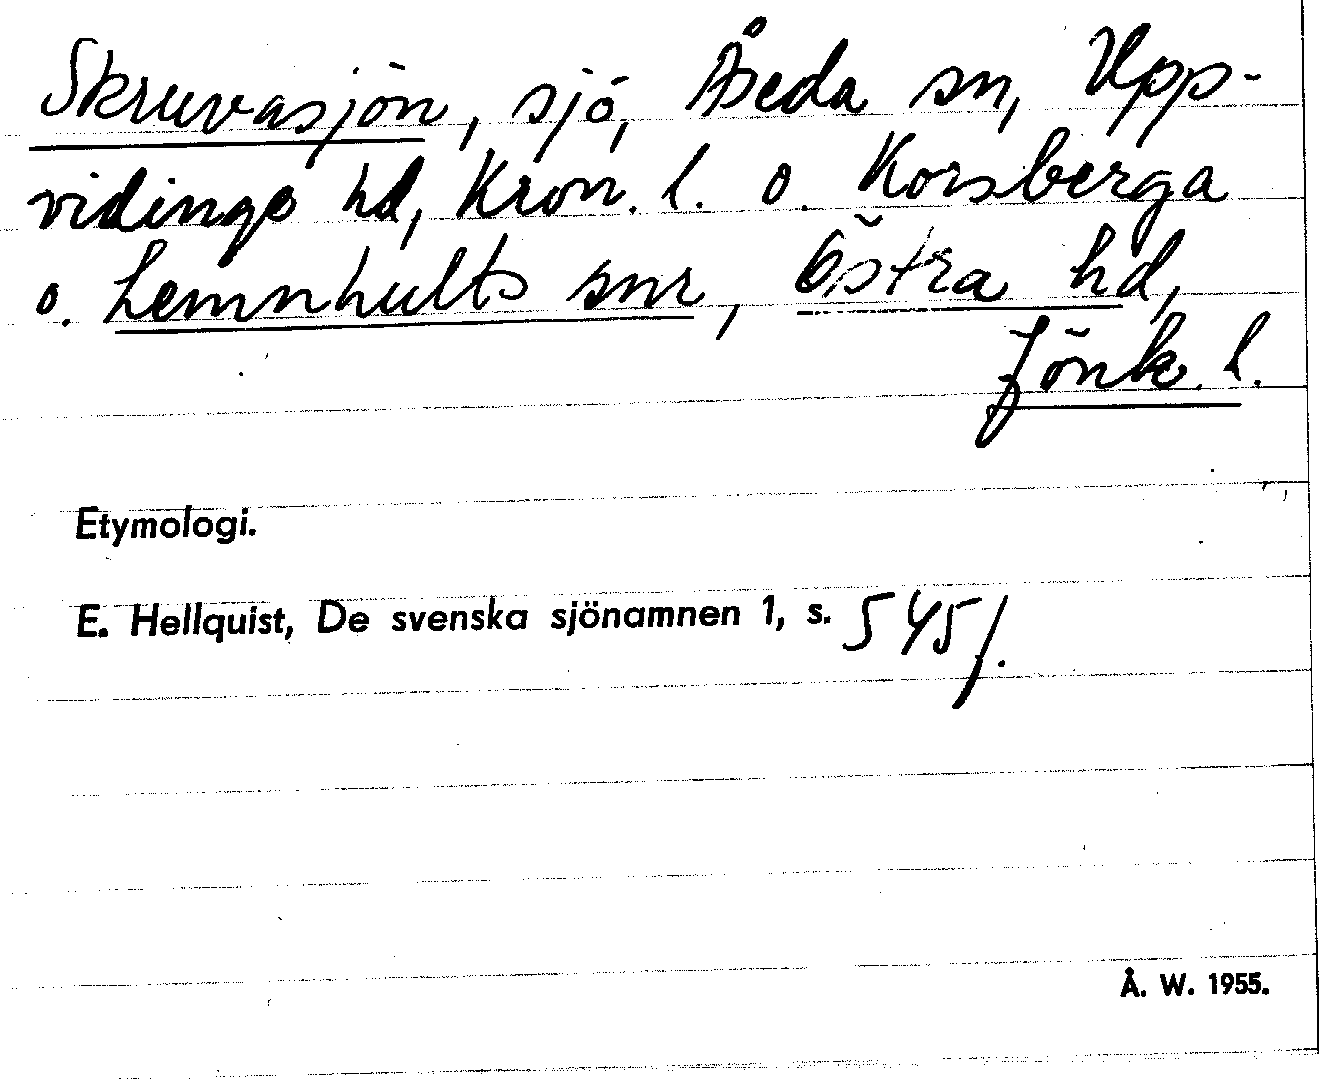 Skruvasjön, sjö, Åseda sn, Upp-
vidinge hd, Kron. l. o. Korsberga
o. Lemnhults snr, Östra hd,
Jönk. l.
Etymologi.
E. Hellquist, De svenska sjönamnen 1, s. 545f.
Å. W. 1955.